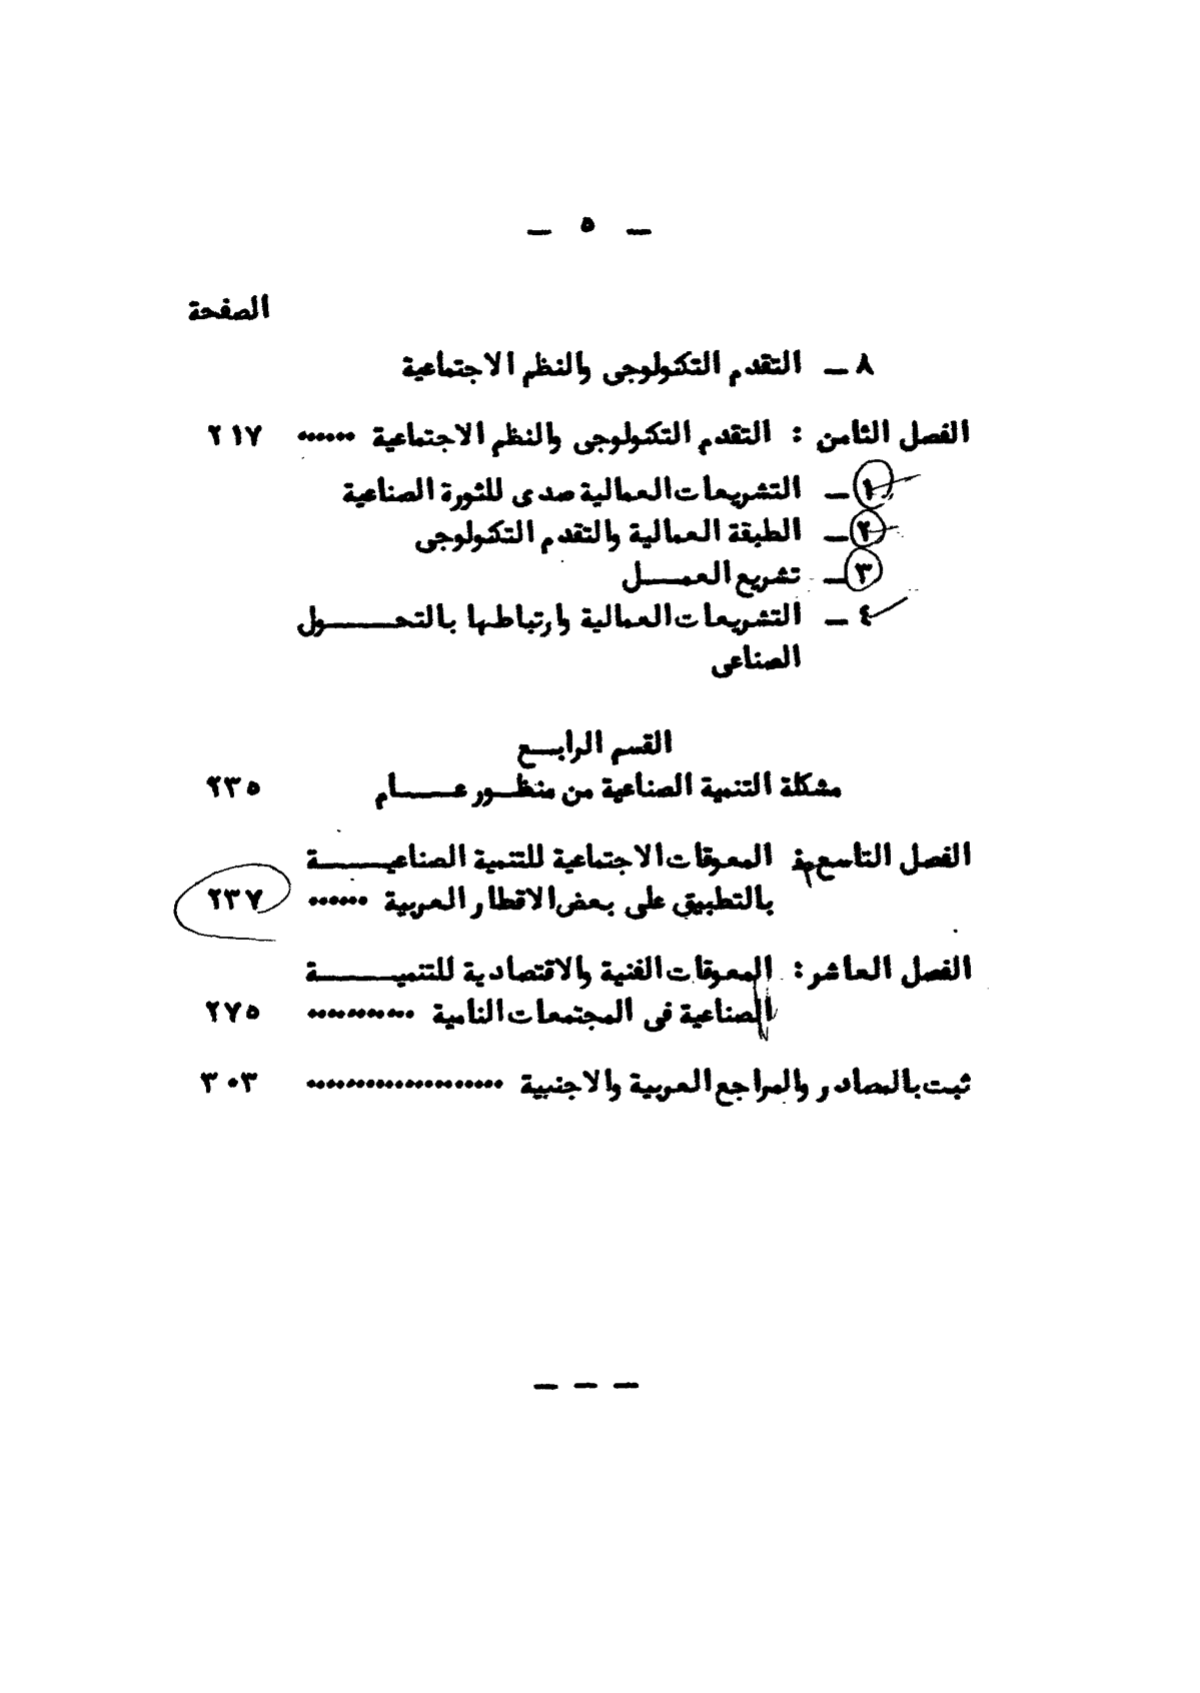 ـ ٥ ـ
الصفحة
٨ ـ التقدم التكنولوجى والنظم الاجتماعية
الفصل الثامن : التقدم التكنولوجى والنظم الاجتماعية ...... ٢١٧
١ ـ التشريعات العمالية صدى للثورة الصناعية
٢ ـ الطبقة العمالية والتقدم التكنولوجى
٣ ـ تشريع العمـــل
٤ ـ التشريعات العمالية وارتباطها بالتحـــــول
الصناعى
القسم الرابـــع
مشكلة التنمية الصناعية من منظـــور عـــــام ٢٣٥
الفصل التاسع : المعوقات الاجتماعية للتنمية الصناعيــــــة
بالتطبيق على بعض الاقطار العربية ...... ٢٣٧
الفصل العاشر : المعوقات الفنية والاقتصادية للتنميــــــة
الصناعية فى المجتمعات النامية .......... ٢٧٥
ثبت بالمصادر والمراجع العربية والاجنبية .................... ٣٠٣
ـ ـ ـ